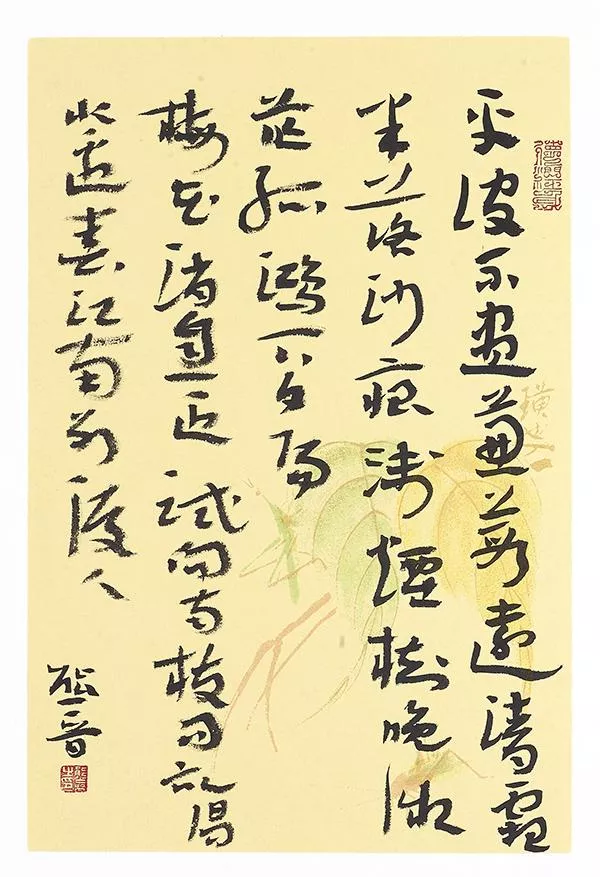 平波不盡蒹葭遠清霜
半落沙痕淺煙樹晚微
茫孤鴻下夕陽
梅花消息近試向南枝問記得
水邊春江南別後人